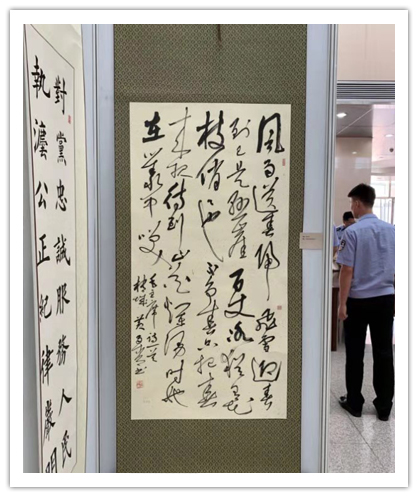 風雨送春歸飛雪迎春
到已是懸崖百丈冰猶有花
枝俏也不爭春只把春
來報待到山花爛漫時她
在叢中笑
毛主席詞
詠梅
對黨忠誠服務人民
執灋公正紀律嚴明